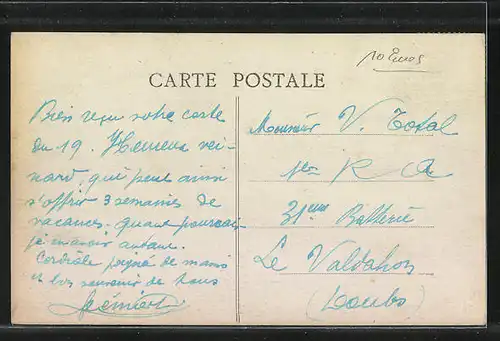 10 Euros
CARTE POSTALE
Bien reçu votre carte
du 19. Heureux vei-
nard, qui peut ainsi
s'offrir 3 semaines de
vacances, quand pourrai-
je en avoir autant.
Cordiale poignée de mains
et bon souvenir de tous
Monsieur V. Total
1er R A
31eme Batterie
Le Valdahon
(Doubs)